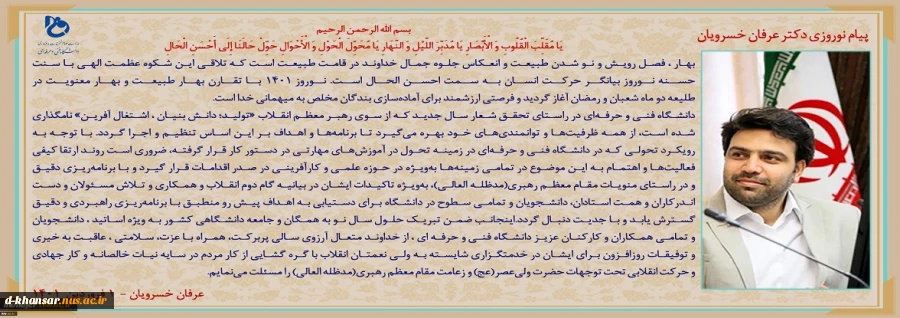 پیام نوروزی دکتر عرفان خسرویان
بسم الله الرحمن الرحیم
یَا مُقَلِّبَ الْقُلُوبِ وَ الْأَبْصَارِ یَا مُدَبِّرَ اللَّیْلِ وَ النَّهَارِ یَا مُحَوِّلَ الْحَوْلِ وَ الْأَحْوَالِ حَوِّلْ حَالَنَا إِلَی أَحْسَنِ الْحَالِ
بهار ، فصل رویش و نو شدن طبیعت و انعکاس جلوه جمال خداوند در قامت طبیعت است که تلاقی این شکوه عظمت الهی با سنت
حسنه نوروز بیانگر حرکت انسان به سمت احسن الحال است. نوروز ۱۴۰۱ با تقارن بهار طبیعت و بهار معنویت در
طلیعه دو ماه شعبان و رمضان آغاز گردید و فرصتی ارزشمند برای آماده‌سازی بندگان مخلص به میهمانی خدا است.
دانشگاه فنی و حرفه‌ای در راستای تحقق شعار سال جدید که از سوی رهبر معظم انقلاب «تولید؛ دانش بنیان ، اشتغال آفرین» نامگذاری
شده است، از همه ظرفیت‌ها و توانمندی‌های خود بهره می‌گیرد تا برنامه‌ها و اهداف بر این اساس تنظیم و اجرا گردد. با توجه به
رویکرد تحولی که در دانشگاه فنی و حرفه‌ای در زمینه تحول در آموزش‌های مهارتی در دستور کار قرار گرفته، ضروری است روند ارتقا کیفی
فعالیت‌ها و اهتمام به این موضوع در تمامی زمینه‌ها به‌ویژه در حوزه علمی و کارآفرینی در صدر اقدامات قرار گیرد و با برنامه‌ریزی دقیق
و در راستای منویات مقام معظم رهبری(مدظله العالی)، به‌ویژه تاکیدات ایشان در بیانیه گام دوم انقلاب و همکاری و تلاش مسئولان و دست
اندرکاران و همت استادان، دانشجویان و تمامی سطوح در دانشگاه برای دستیابی به اهداف پیش رو منطبق با برنامه‌ریزی راهبردی و دقیق
گسترش یابد و با جدیت دنبال گردد.اینجانب ضمن تبریک حلول سال نو به همگان و جامعه دانشگاهی کشور به ویژه اساتید ، دانشجویان
و تمامی همکاران و کارکنان عزیز دانشگاه فنی و حرفه ای ، از خداوند متعال آرزوی سالی پربرکت، همراه با عزت، سلامتی ، عاقبت به خیری
و توفیقات روزافزون برای ایشان در خدمتگزاری شایسته به ولی نعمتان انقلاب با گره گشایی از کار مردم در سایه نیات خالصانه و کار جهادی
و حرکت انقلابی تحت توجهات حضرت ولی‌عصر(عج) و زعامت مقام معظم رهبری(مدظله العالی) را مسئلت می‌نمایم.
عرفان خسرویان -
d-khansar.nus.ac.ir